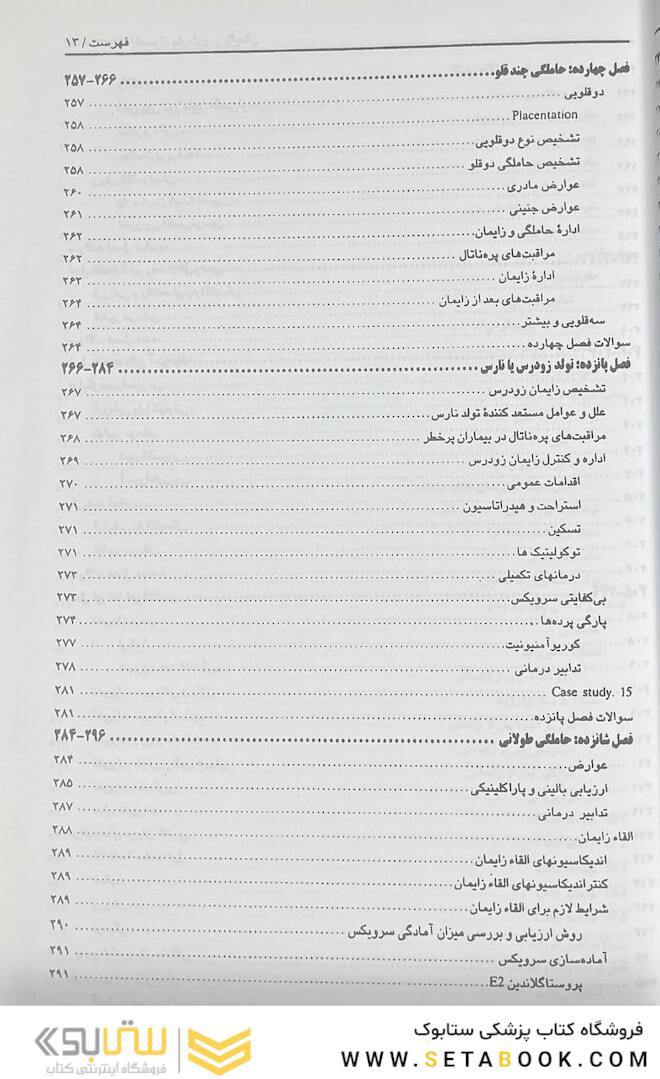 فهرست / ۱۳
فصل چهارده: حاملگی چند قلو ۲۵۷-۲۶۶
دوقلویی ۲۵۷
Placentation ۲۵۸
تشخیص نوع دوقلویی ۲۵۸
تشخیص حاملگی دوقلو ۲۵۸
عوارض مادری ۲۶۰
عوارض جنینی ۲۶۱
ادارهٔ حاملگی و زایمان ۲۶۲
مراقبت‌های پره‌ناتال ۲۶۲
ادارهٔ زایمان ۲۶۳
مراقبت‌های بعد از زایمان ۲۶۴
سه‌قلویی و بیشتر ۲۶۴
سوالات فصل چهارده ۲۶۴
فصل پانزده: تولد زودرس یا نارس ۲۶۶-۲۸۴
تشخیص زایمان زودرس ۲۶۷
علل و عوامل مستعد کنندهٔ تولد نارس ۲۶۷
مراقبت‌های پره‌ناتال در بیماران پرخطر ۲۶۸
اداره و کنترل زایمان زودرس ۲۶۹
اقدامات عمومی ۲۷۰
استراحت و هیدراتاسیون ۲۷۱
تسکین ۲۷۱
توکولیتیک ها ۲۷۱
درمانهای تکمیلی ۲۷۳
بی‌کفایتی سرویکس ۲۷۳
پارگی پرده‌ها ۲۷۴
کوریوآمنیونیت ۲۷۷
تدابیر درمانی ۲۷۸
Case study. 15 ۲۸۱
سوالات فصل پانزده ۲۸۱
فصل شانزده: حاملگی طولانی ۲۸۴-۲۹۶
عوارض ۲۸۴
ارزیابی بالینی و پاراکلینیکی ۲۸۵
تدابیر درمانی ۲۸۷
القاء زایمان ۲۸۸
اندیکاسیونهای القاء زایمان ۲۸۹
کنتراندیکاسیونهای القاء زایمان ۲۸۹
شرایط لازم برای القاء زایمان ۲۸۹
روش ارزیابی و بررسی میزان آمادگی سرویکس ۲۹۰
آماده‌سازی سرویکس ۲۹۱
پروستاگلاندین E2 ۲۹۱
فروشگاه کتاب پزشکی ستابوک
WWW.SETABOOK.COM
ستابوک
فروشگاه اینترنتی کتاب